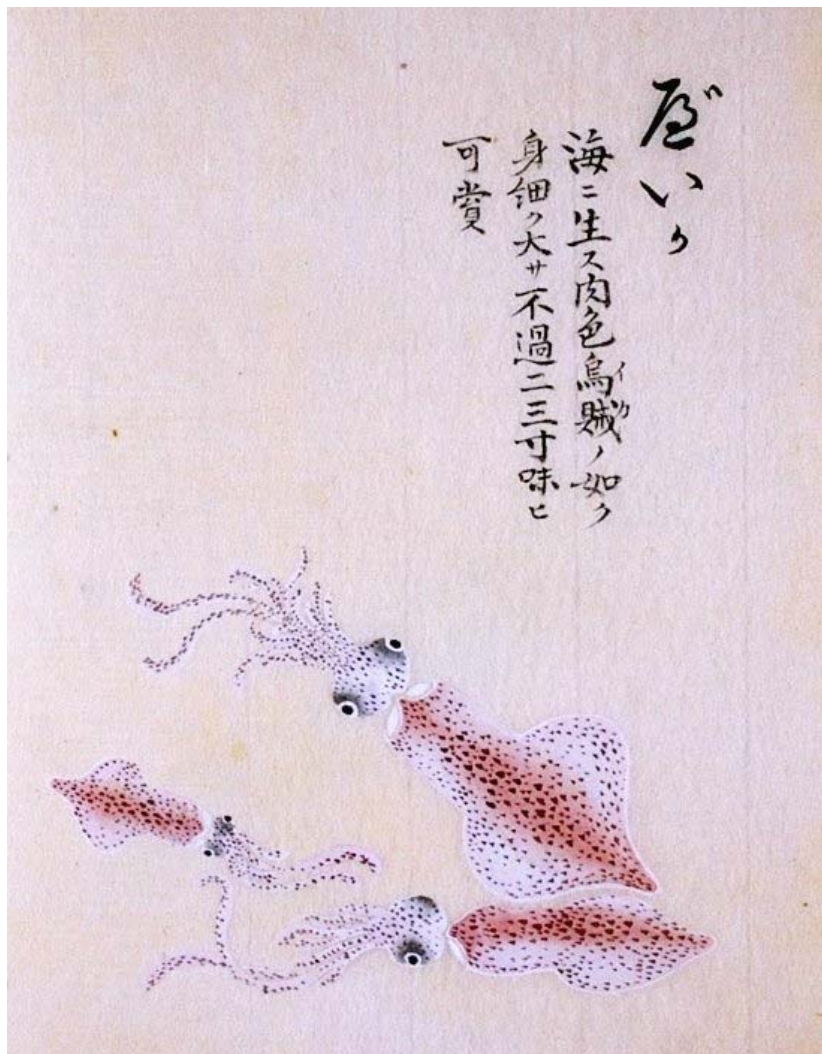 べいか
海ニ生ス肉色烏賊ノ如ク
イカ
身細ク大サ不過二三寸味ヒ
可賞